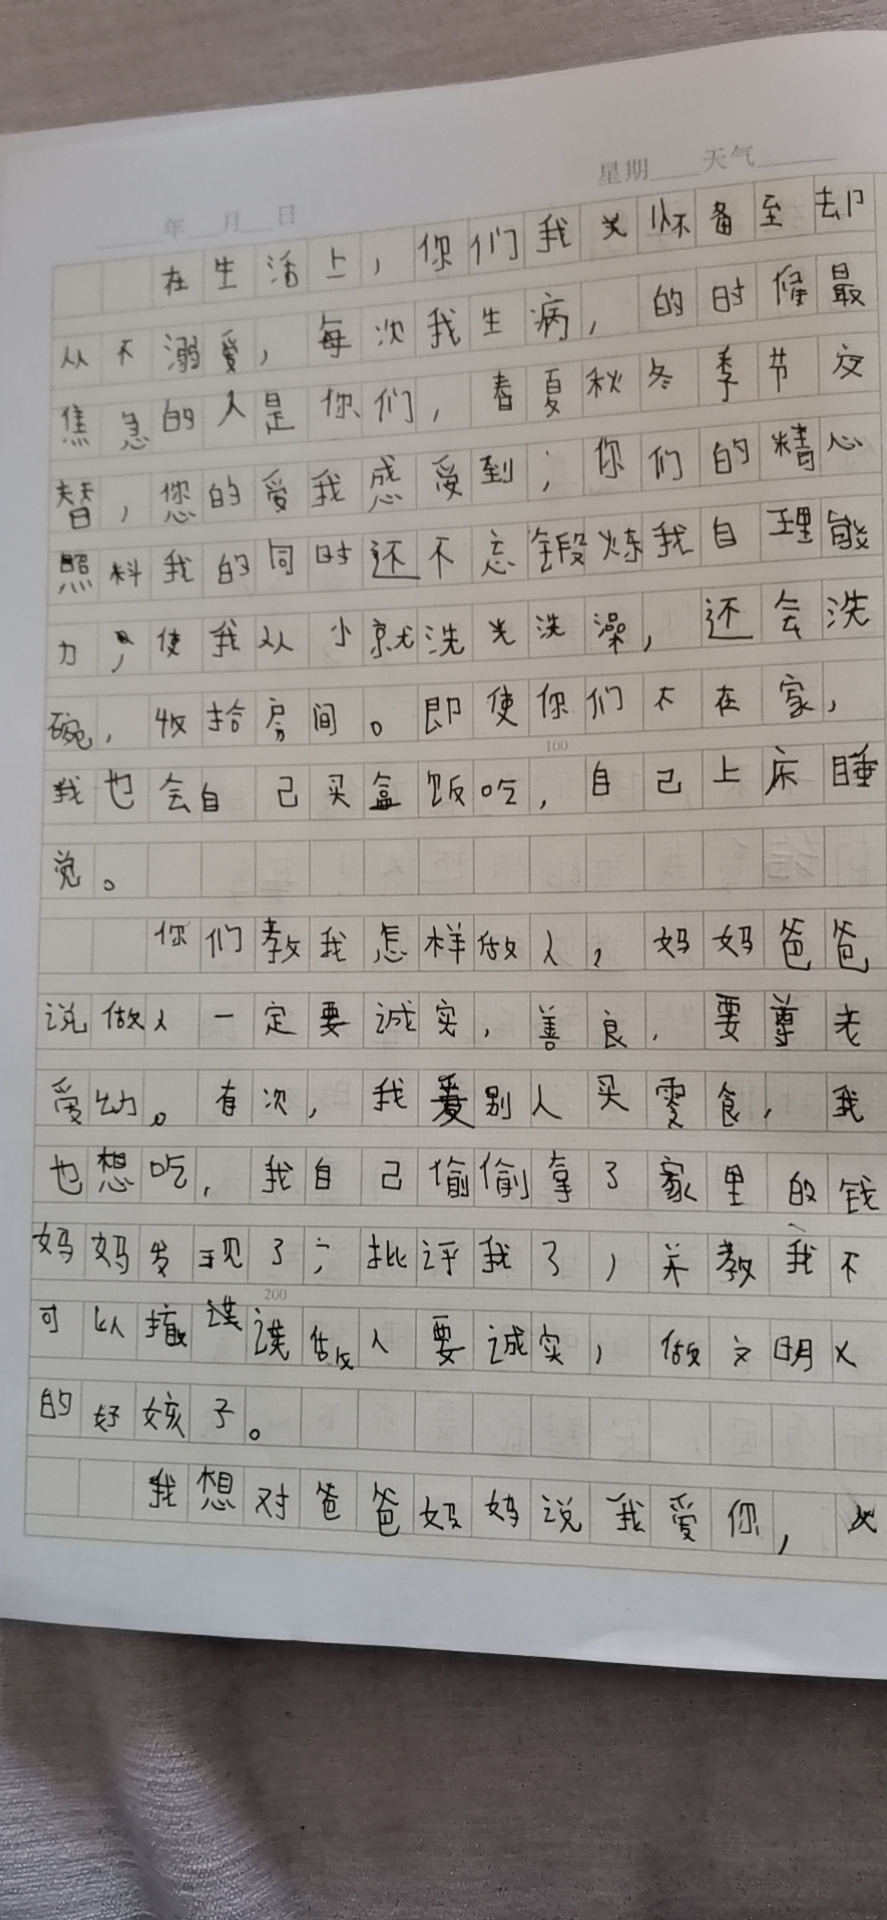 星期 天气
年 月 日
在生活上，你们我关怀备至却
从不溺爱，每次我生病，的时候最
焦急的人是你们，春夏秋冬季节交
替，您的爱我感受到；你们的精心
照料我的同时还不忘锻炼我自理能
力，使我从小就洗光洗澡，还会洗
碗，收拾房间。即使你们不在家，
100
我也会自己买盒饭吃，自己上床睡
觉。
你们教我怎样做人，妈妈爸爸
说做人一定要诚实，善良，要尊老
爱幼。有次，我看别人买零食，我
也想吃，我自己偷偷拿了家里的钱
妈妈发现了；批评我了，并教我不
200
可以撒谎谎做人要诚实，做文明人
的好孩子。
我想对爸爸妈妈说我爱你，